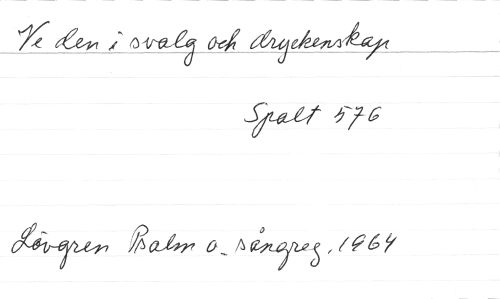 Ve den i svalg och dryckenskap
Spalt 576
Lövgren Psalm o. sångreg. 1964